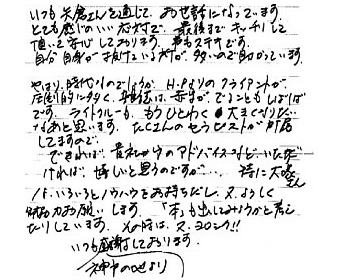 いつも矢倉さんを通じて、お世話になっています。
とても感じのいい応対で、最後までキッチリして
頂いて安心しております。声もステキです。
自分自身が抜けている方が多いので助かっています。
やはり、時代なのでしょうが、H.Pよりのクライアントが
圧倒的に多く、雑誌は、赤字がでることもしばしば
です。ライトクルーも、もうひとわく大きくなりたい
なあと思います。たくさんのセラピストが所属
してますので、
できれば、貴社のアドバイスなどいただ
ければ、嬉しいと思うのですが… 特に大
いろいろとノウハウをお持ちだし、又、よろしく
お願いします。「本」も出してみようかと考え
たりしています。その時は、又、ヨロシク!!
いつも感謝しております。
神中のせより